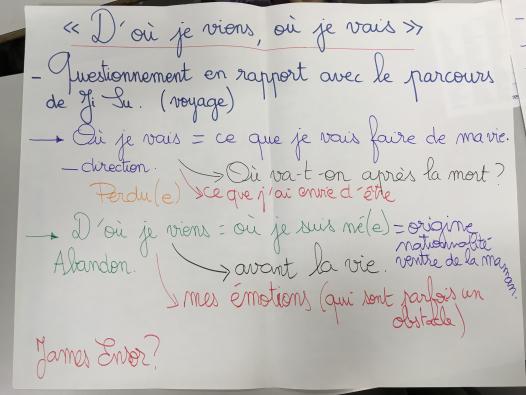 « D'où je viens, où je vais »
- Questionnement en rapport avec le parcours
de Ji Su. (voyage)
→ Où je vais = ce que je vais faire de ma vie.
- direction.
→ Où va-t-on après la mort ?
Perdu(e)
→ ce que j'ai envie d'être
→ D'où je viens = où je suis né(e) = origine
nationalité
ventre de la maman.
Abandon.
→ avant la vie.
→ mes émotions (qui sont parfois un
obstacle)
James Ensor ?